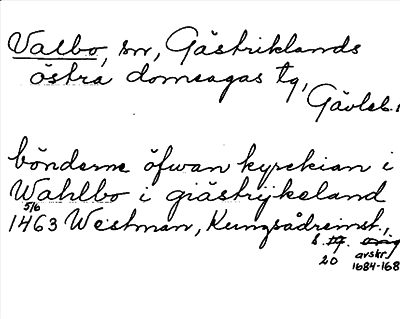 Valbo, sn, Gästriklands
östra domsagas tg,
Gävleb.
bönderne öfwan kyrckian i
Wahlbo i giästrijkeland
5/6
1463 Westman, Kungsådreinst.,
s.
20 avskr.
1684-168